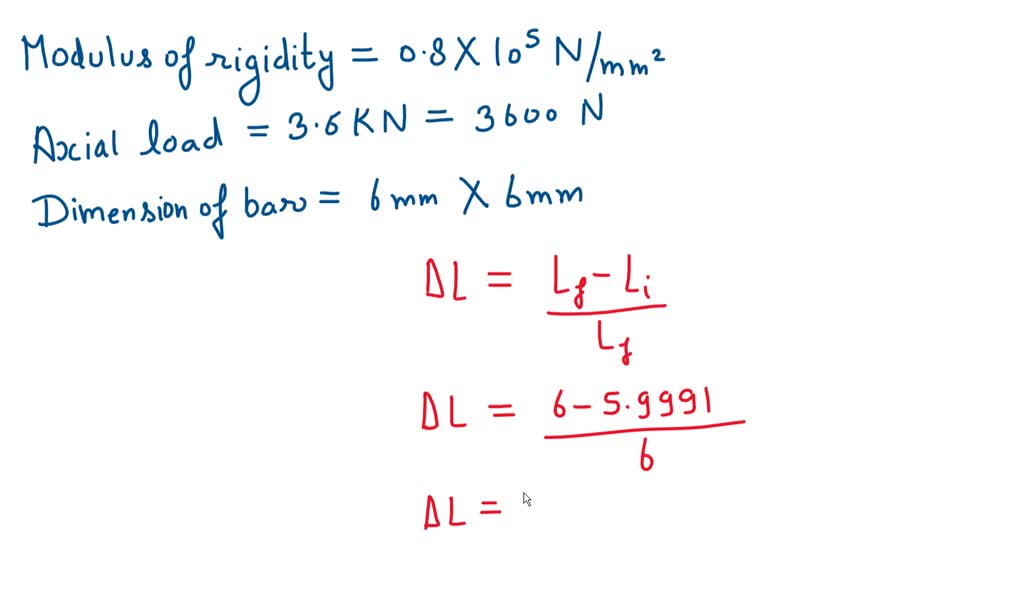 Modulus of rigidity = 0.8 X 10⁵ N/mm²
Axial load = 3.6 KN = 3600 N
Dimension of bar = 6mm X 6mm
ΔL = (L_f - L_i) / L_f
ΔL = (6 - 5.9991) / 6
ΔL =